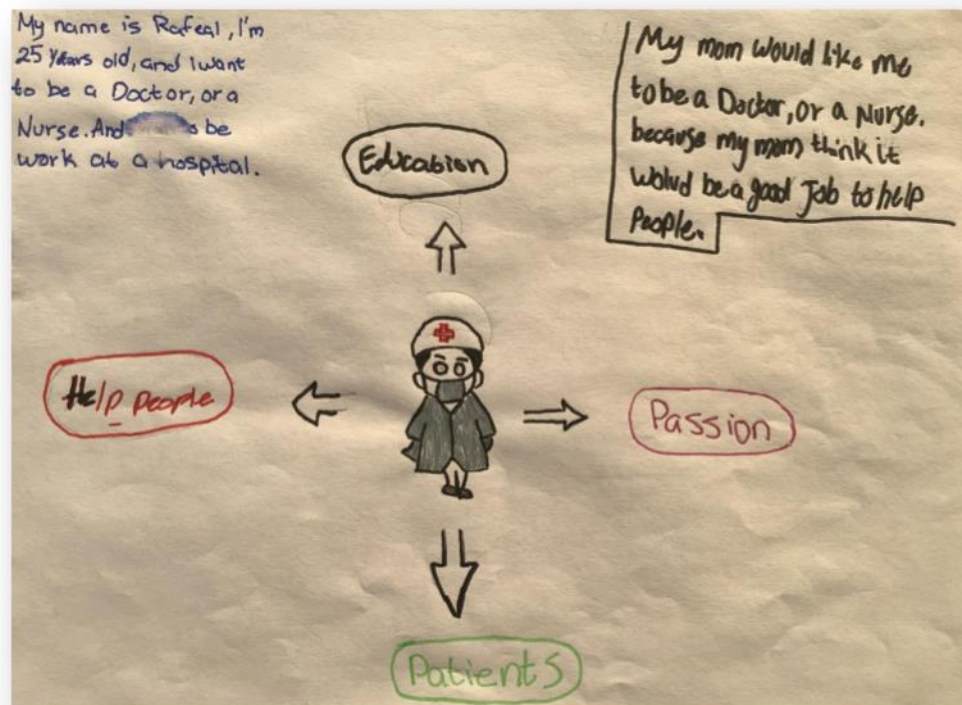 My name is Rafeal, I'm
25 years old, and I want
to be a Doctor, or a
Nurse. And be
work at a hospital.
My mom would like me
to be a Doctor, or a Nurse.
because my mom think it
wolud be a good Job to help
People.
Education
Help people
Passion
Patients